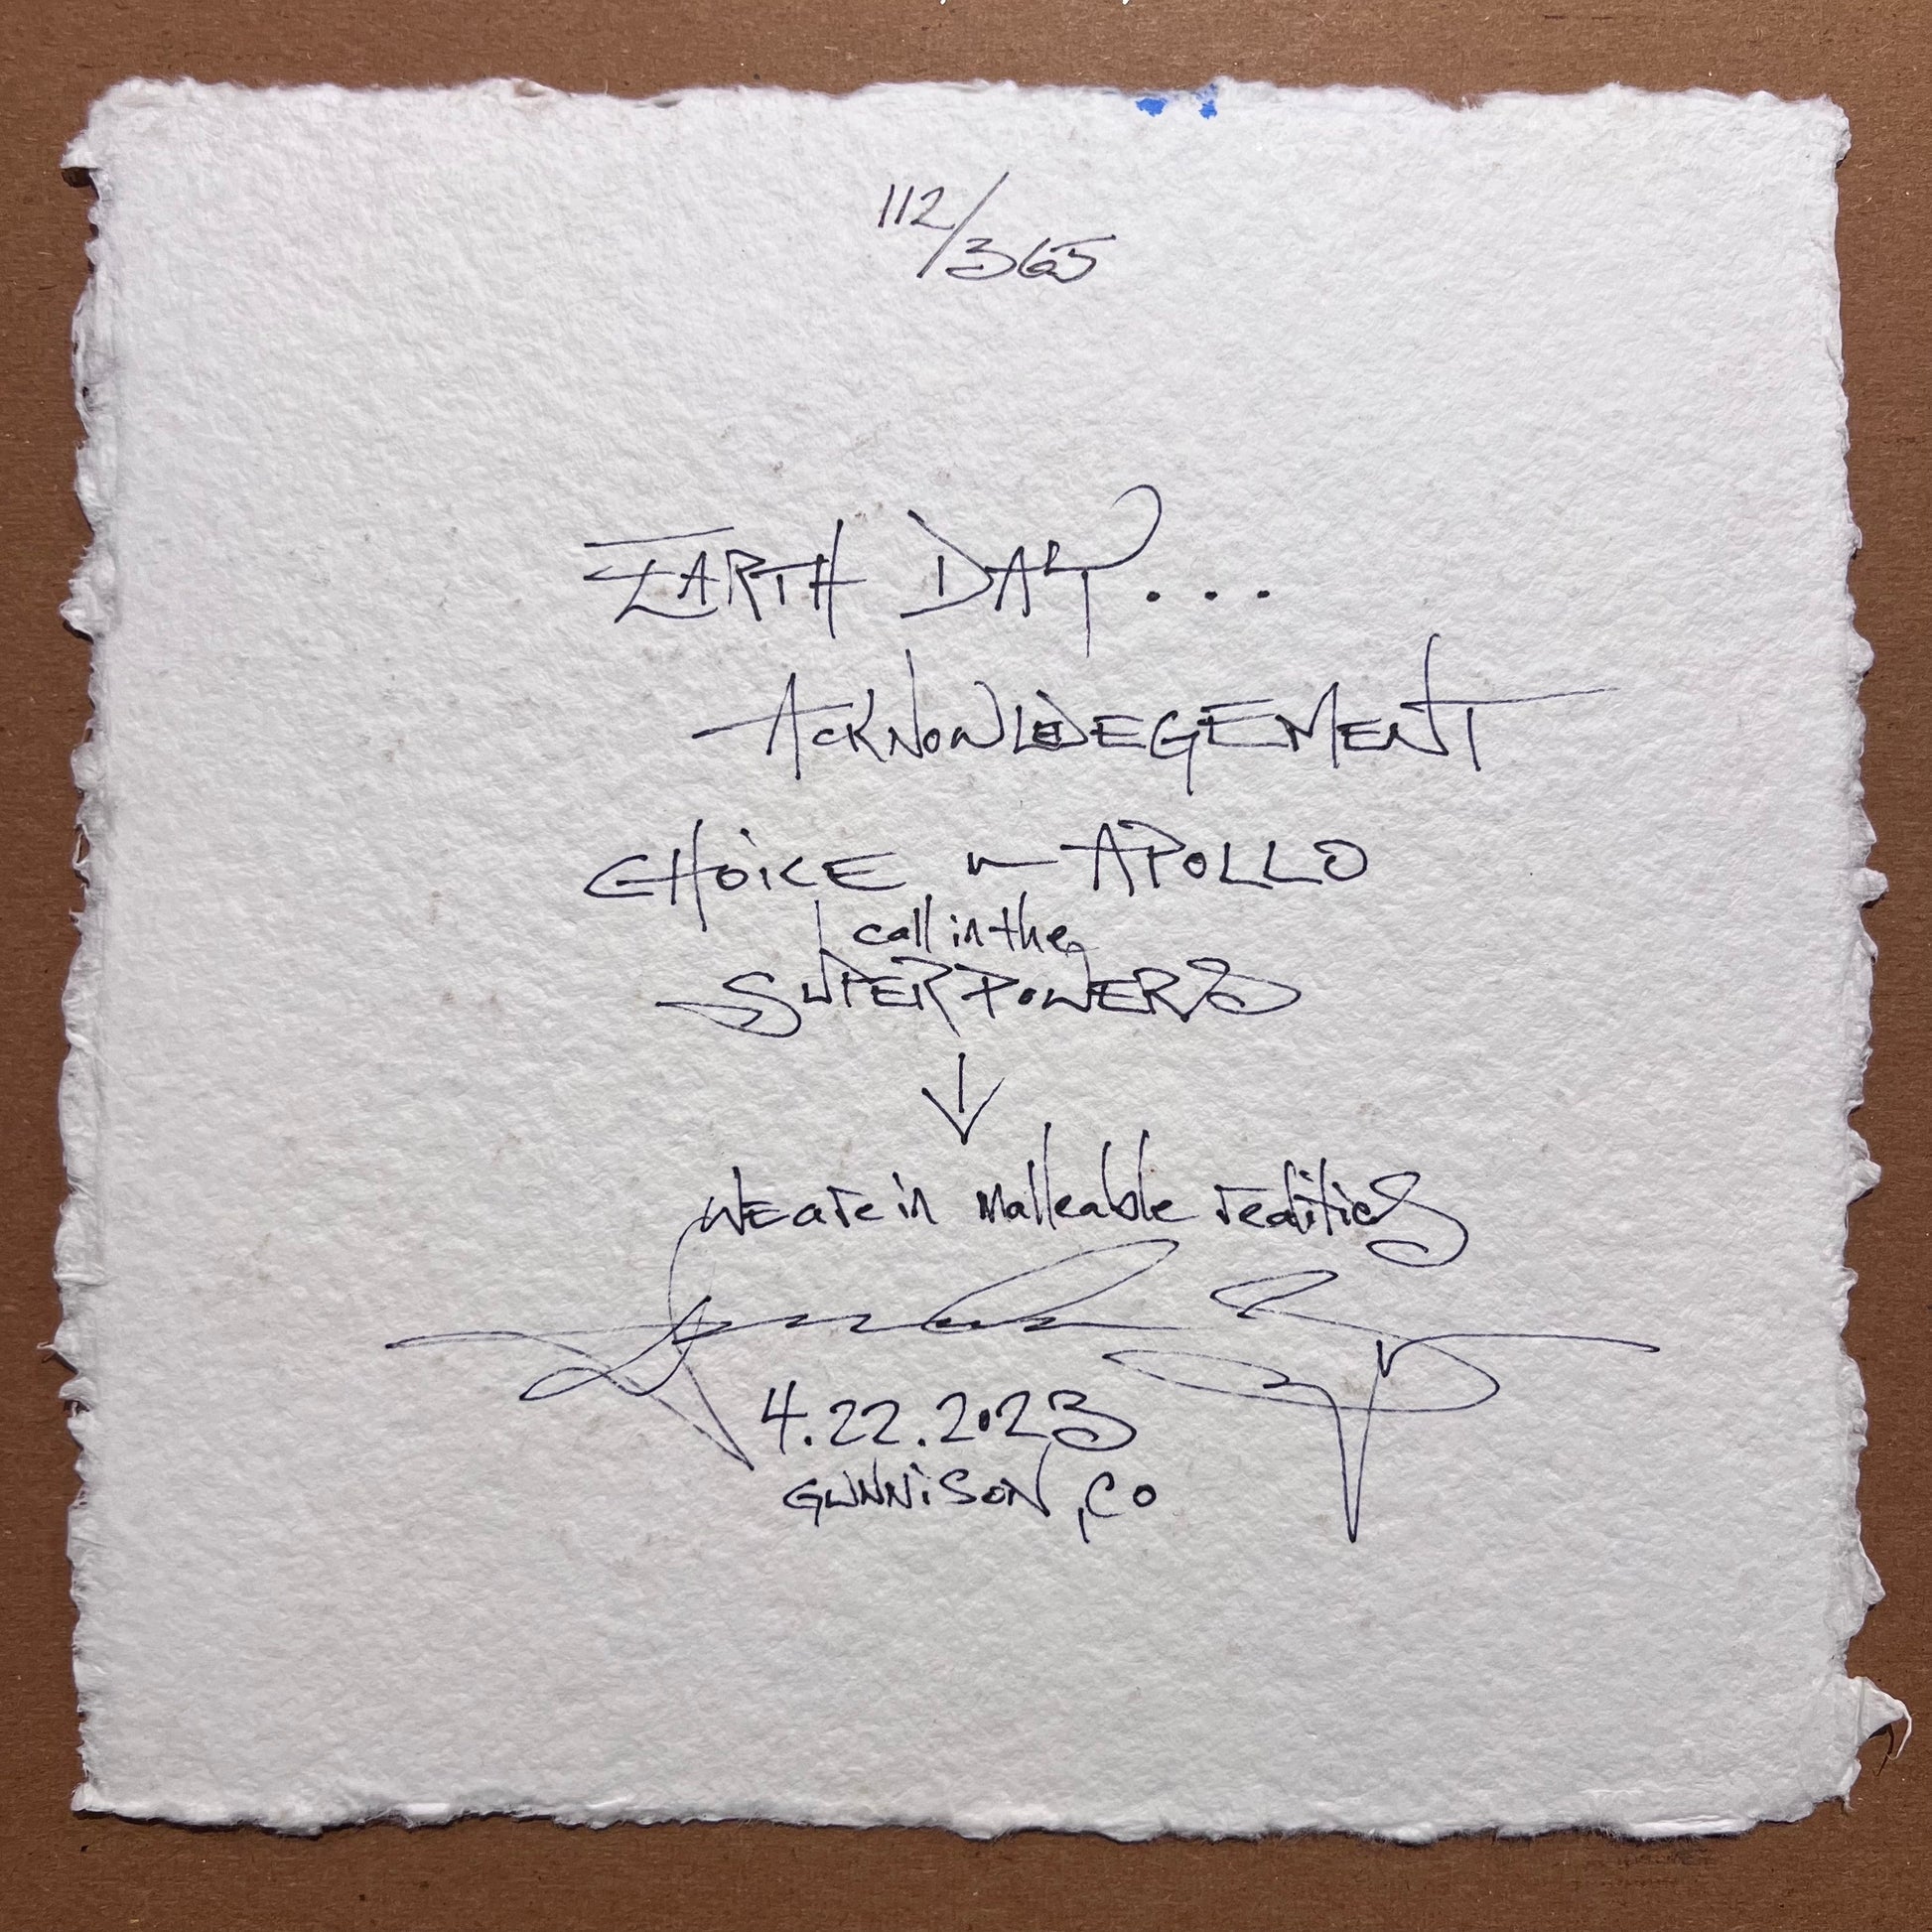 112/365
EARTH DAY...
ACKNOWLEDEGEMENT
CHOICE ~ APOLLO
call in the
SUPERPOWERS
↓
WE are in malleable realities
4.22.2023
GUNNISON, CO